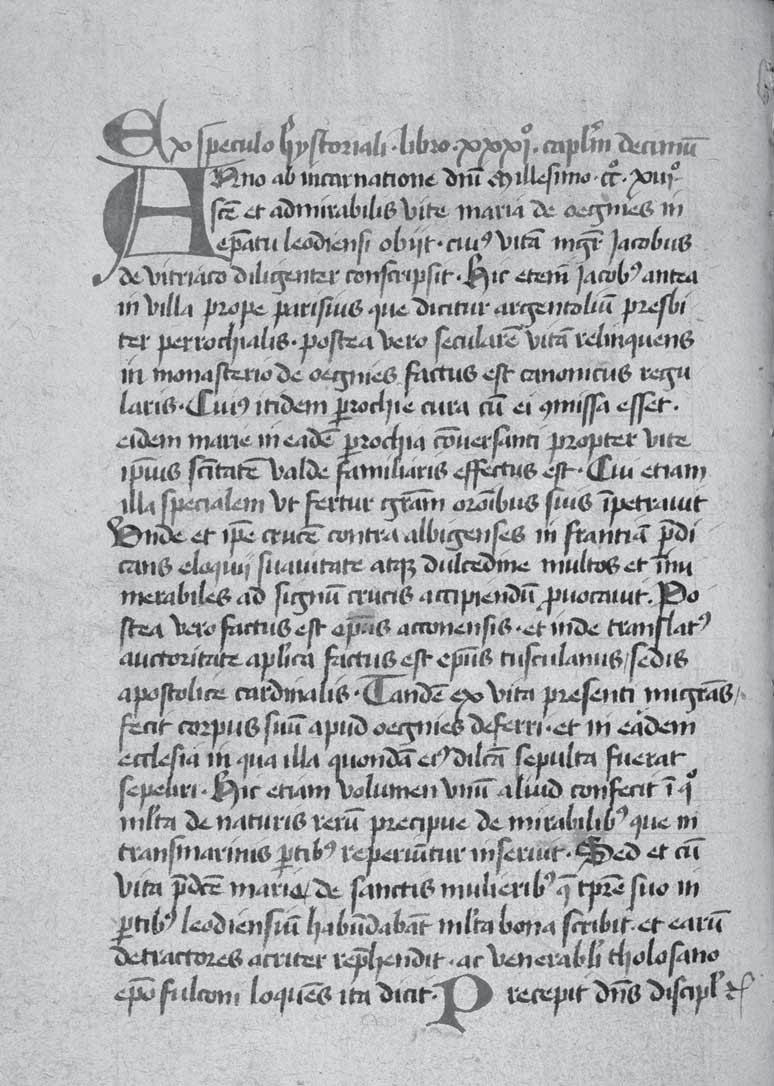 Ex speculo hystoriali · libro · xxxiº · caplm̄ decimū
Anno ab incarnatione dn̄i Millesimo · ccº · xiiiº ·
scē et admirabilis vite maria de oegnies in
ep̄atu leodiensi obijt · cuiꝰ vitā mgr̄ Jacobus
de vitriaco diligenter conscripsit · Hic etem̄ Jacobꝰ antea
in villa prope parisius que dicitur argentoliū presbi
ter perrochialis · postea vero secularē vitā relinquens
in monasterio de oegnies factus est canonicus regu
laris · Cuiꝰ itidem ꝑrochie cura cū ei ꝯmissa esset ·
eidem marie in eadē ꝑrochia cōversanti propter vite
ip̄ius scītatē valde familiaris effectus est · Cui etiam
illa specialem vt fertur gr̄am oronībus suis īpetravit
Vnde et ip̄e crucē contra albigenses in frantiā p̄di
cans eloquij suavitate atqꝫ dulcedine multos et īnu
merabiles ad signū crucis accipiendū ꝓuocavit. Po
stea vero factus est ep̄us acconensis · et inde translatꝰ
auctoritate ap̄lica factus est ep̄us tusculanus / sedis
apostolice cardinalis · Tandē ex vita presenti migrās /
fecit corpus suū apud oegnies deferri · et in eadem
ecclesia in qua illa quondā eiꝰ dilc̄a sepulta fuerat
sepeliri · Hic etiam volumen vnū aliud confecit ī qº
ml̄ta de naturis rerū precipue de mirabilibꝰ que in
transmarinis ꝑtibꝰ reperiūtur inseruit · Sed et cū
vita p̄dc̄e marie / de sanctis mulieribꝰ q̄ tp̄re suo in
ꝑtibꝰ leodiensiū habūdabāt ml̄ta bona scribit · et earū
detractores acriter rep̄hendit · ac venerabl̄i tholosano
ep̄o fulconi loquēs ita dicit · Precepit dn̄s discipl̄